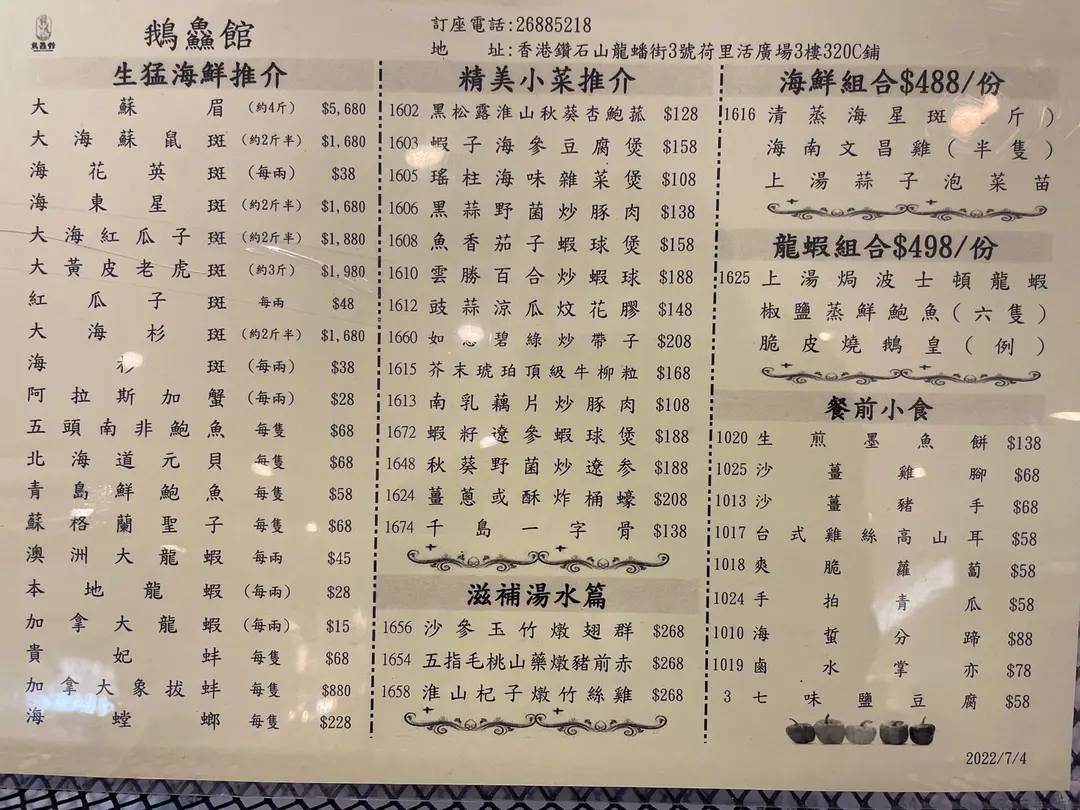 鵝鱻館
訂座電話:26885218
地 址:香港鑽石山龍蟠街3號荷里活廣場3樓320C鋪
生猛海鮮推介
大蘇眉 (約4斤) $5,680
大海蘇鼠斑 (約2斤半) $1,680
海花英斑 (每兩) $38
海東星斑 (約2斤半) $1,680
大海紅瓜子斑 (約2斤半) $1,880
大黃皮老虎斑 (約3斤) $1,980
紅瓜子斑 每兩 $48
大海杉斑 (約2斤半) $1,680
海杉斑 (每兩) $38
阿拉斯加蟹 (每兩) $28
五頭南非鮑魚 每隻 $68
北海道元貝 每隻 $68
青島鮮鮑魚 每隻 $58
蘇格蘭聖子 每隻 $68
澳洲大龍蝦 每兩 $45
本地龍蝦 (每兩) $28
加拿大龍蝦 (每兩) $15
貴妃蚌 每隻 $68
加拿大象拔蚌 每隻 $880
海螳螂 每隻 $228
精美小菜推介
1602 黑松露淮山秋葵杏鮑菰 $128
1603 蝦子海參豆腐煲 $158
1605 瑤柱海味雜菜煲 $108
1606 黑蒜野菌炒豚肉 $138
1608 魚香茄子蝦球煲 $158
1610 雲勝百合炒蝦球 $188
1612 豉蒜涼瓜炆花膠 $148
1660 如意碧綠炒帶子 $208
1615 芥末琥珀頂級牛柳粒 $168
1613 南乳藕片炒豚肉 $108
1672 蝦籽遼參蝦球煲 $188
1648 秋葵野菌炒遼参 $188
1624 薑蔥或酥炸桶蠔 $208
1674 千島一字骨 $138
滋補湯水篇
1656 沙參玉竹燉翅群 $268
1654 五指毛桃山藥燉豬前赤 $268
1658 淮山杞子燉竹絲雞 $268
海鮮組合$488/份
1616 清蒸海星斑 斤)
海南文昌雞(半隻)
上湯蒜子泡菜苗
龍蝦組合$498/份
1625 上湯焗波士頓龍蝦
椒鹽蒸鮮鮑魚(六隻)
脆皮燒鵝皇(例)
餐前小食
1020 生煎墨魚餅 $138
1025 沙薑雞腳 $68
1013 沙薑豬手 $68
1017 台式雞絲高山耳 $58
1018 爽脆蘿蔔 $58
1024 手拍青瓜 $58
1010 海蜇分蹄 $88
1019 鹵水掌亦 $78
3 七味鹽豆腐 $58
2022/7/4